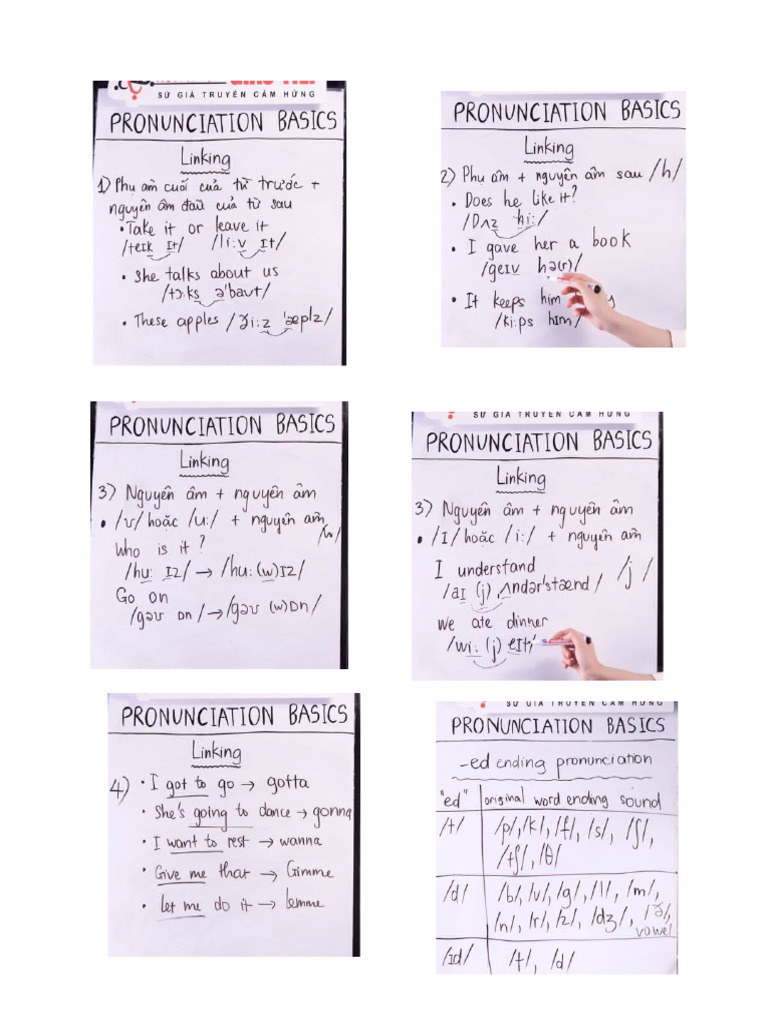 SỨ GIẢ TRUYỀN CẢM HỨNG
PRONUNCIATION BASICS
Linking
1) Phụ âm cuối của từ trước +
nguyên âm đầu của từ sau
• Take it or leave it
/teɪk ɪt/ /liːv ɪt/
• She talks about us
/tɔːks ə'baʊt/
• These apples /ðiːz 'æplz/
PRONUNCIATION BASICS
Linking
2) Phụ âm + nguyên âm sau /h/
• Does he like it?
/Dʌz hiː/
• I gave her a book
/geɪv hə(r)/
• It keeps him
/kiːps hɪm/
PRONUNCIATION BASICS
Linking
3) Nguyên âm + nguyên âm
• /ʊ/ hoặc /uː/ + nguyên âm
/w/
Who is it?
/huː ɪz/ → /huː (w)ɪz/
Go on
/gəʊ ɒn/ → /gəʊ (w)ɒn/
SỨ GIẢ TRUYỀN CẢM HỨNG
PRONUNCIATION BASICS
Linking
3) Nguyên âm + nguyên âm
• /ɪ/ hoặc /iː/ + nguyên âm
I understand /j/
/aɪ (j) ʌndər'stænd/
we ate dinner
/wiː (j) eɪt/
PRONUNCIATION BASICS
Linking
4) • I got to go → gotta
• She's going to dance → gonna
• I want to rest → wanna
• Give me that → Gimme
• Let me do it → lemme
SỨ GIẢ TRUYỀN CẢM HỨNG
PRONUNCIATION BASICS
-ed ending pronunciation
"ed" original word ending sound
/t/ /p/, /k/, /f/, /s/, /ʃ/,
/tʃ/, /θ/
/d/ /b/, /v/, /g/, /l/, /m/,
/n/, /r/, /z/, /dʒ/, /ð/,
vowel
/ɪd/ /t/, /d/